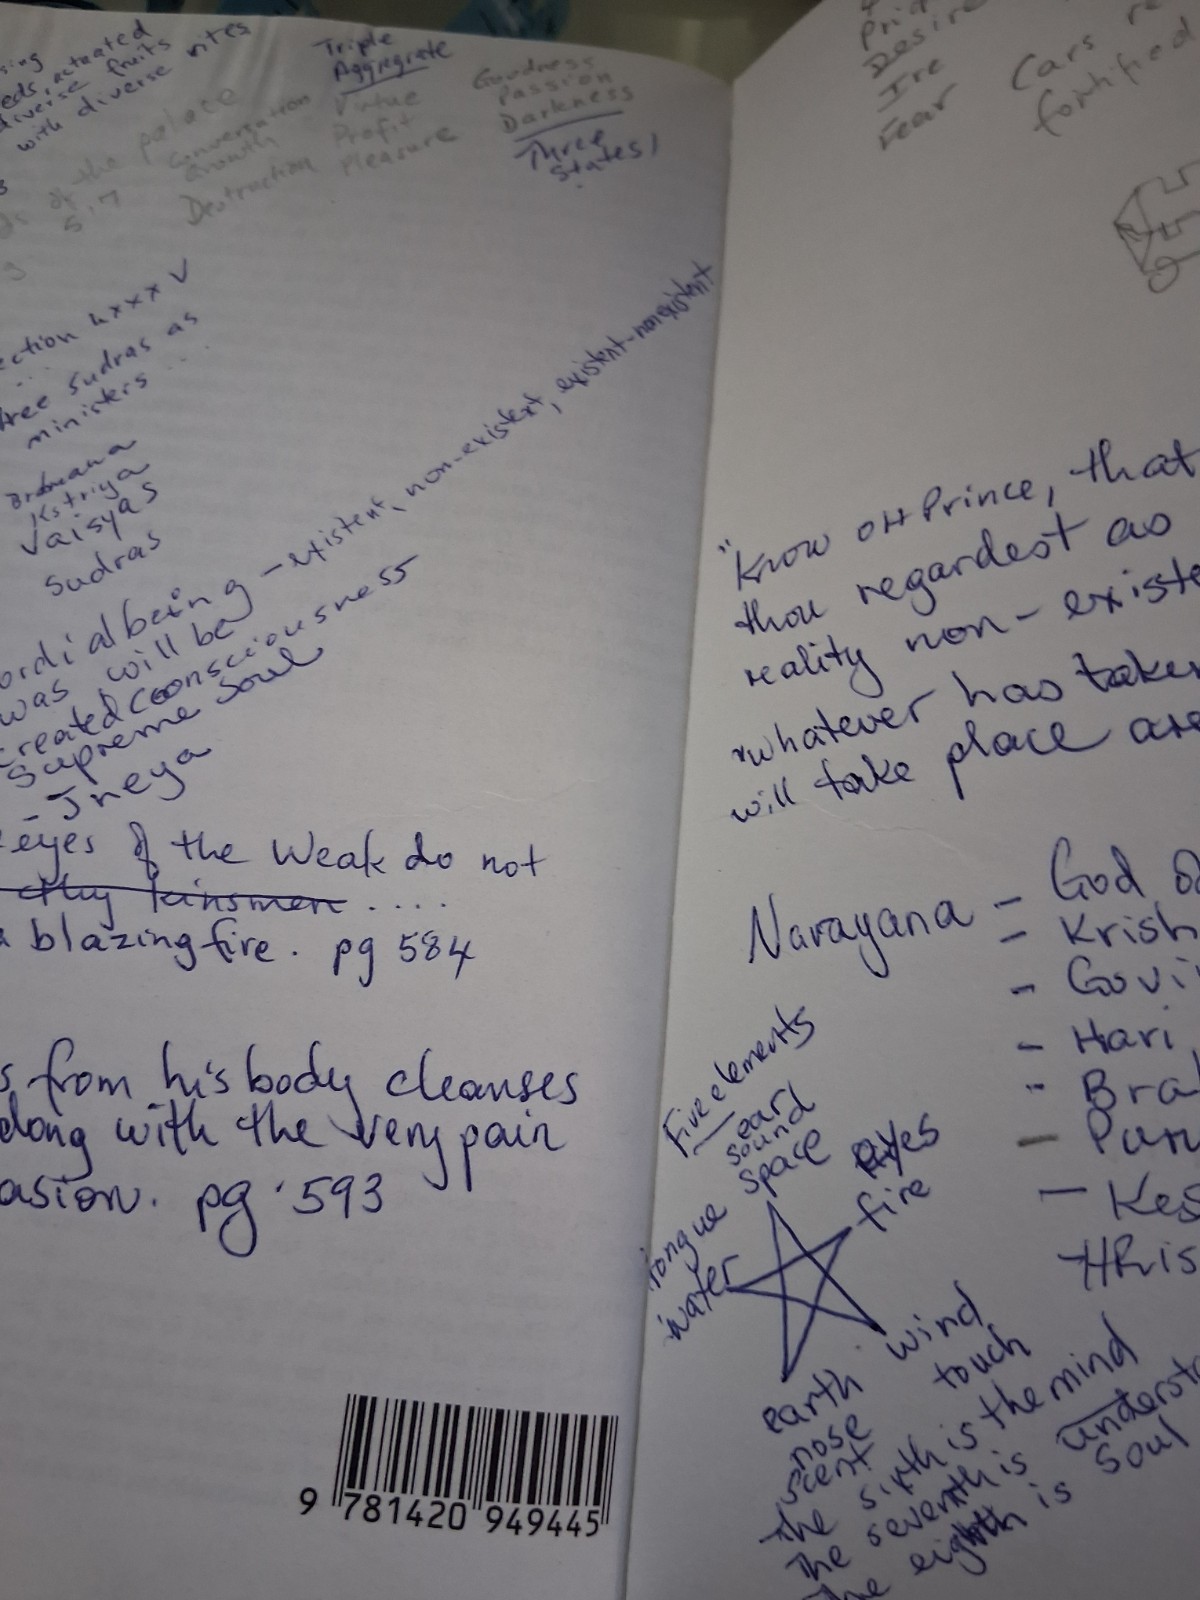 diverse fruits
with diverse rites
Triple
Aggregate
Virtue
Profit
Pleasure
Goodness
Passion
Darkness
Three
States
of the palace
5,7
Growth
Destruction
ection Lxxx V
Sudras as
ministers
Kstriya
Vaisyas
Sudras
ordial being - existent, non-existent, existent-nonexistent
was will be
created consciousness
Supreme Soul
- Jneya
eyes of the Weak do not
thy kinsmen ....
a blazing fire. pg 584
s from his body cleanses
along with the very pain
asion. pg 593
9 781420 949445
Desire
Ire
Fear
Cars
fortified
"Know oH Prince, that
thou regardest as
reality non-existe
whatever has taken
will take place are
Narayana - God
- Krish
- Govi
- Hari
- Bra
- Pur
- Kes
Hris
Five elements
ear
sound
space
eyes
fire
Tongue
water
wind
touch
earth
nose
scent
the sixth is the mind
the seventh is understa
the eighth is Soul